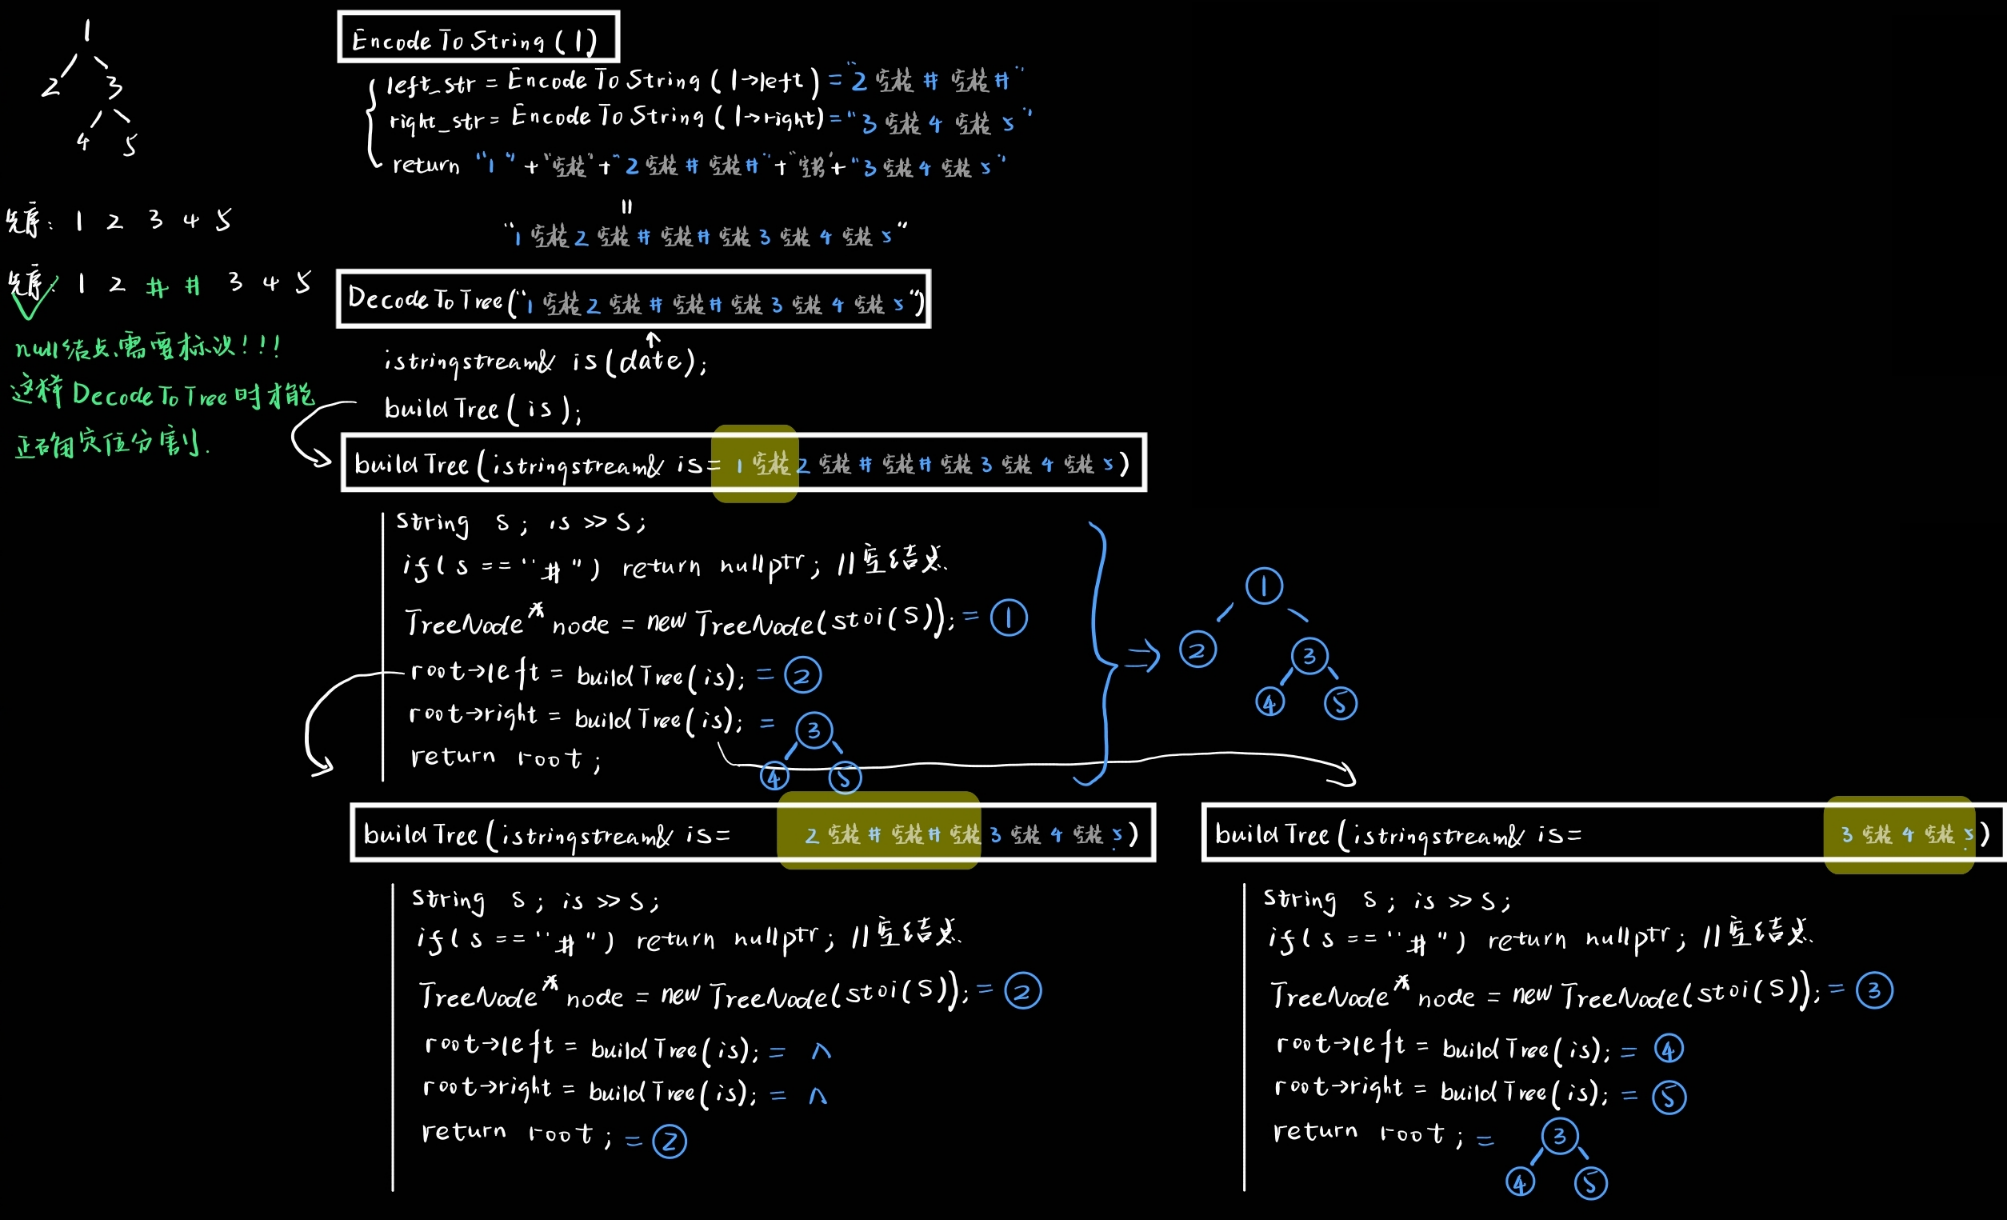 1
2 3
4 5
先序: 1 2 3 4 5
先序: 1 2 # # 3 4 5
null结点需要标识!!!
这样DecodeToTree时才能
正确定位分割.
EncodeToString(1)
left_str = EncodeToString(1→left) = "2空格#空格#"
right_str = EncodeToString(1→right) = "3空格4空格5"
return "1" + "空格" + "2空格#空格#" + "空格" + "3空格4空格5"
=
"1空格2空格#空格#空格3空格4空格5"
DecodeToTree("1空格2空格#空格#空格3空格4空格5")
istringstream& is(date);
buildTree(is);
buildTree(istringstream& is= 1空格2空格#空格#空格3空格4空格5)
string s; is >> s;
if(s == "#") return nullptr; //空结点.
TreeNode* node = new TreeNode(stoi(s)); = ①
root→left = buildTree(is); = ②
root→right = buildTree(is); = ③
④ ⑤
return root;
⇒
①
② ③
④ ⑤
buildTree(istringstream& is= 2空格#空格#空格3空格4空格5)
string s; is >> s;
if(s == "#") return nullptr; //空结点.
TreeNode* node = new TreeNode(stoi(s)); = ②
root→left = buildTree(is); = ∧
root→right = buildTree(is); = ∧
return root; = ②
buildTree(istringstream& is= 3空格4空格5)
string s; is >> s;
if(s == "#") return nullptr; //空结点.
TreeNode* node = new TreeNode(stoi(s)); = ③
root→left = buildTree(is); = ④
root→right = buildTree(is); = ⑤
return root; = ③
④ ⑤